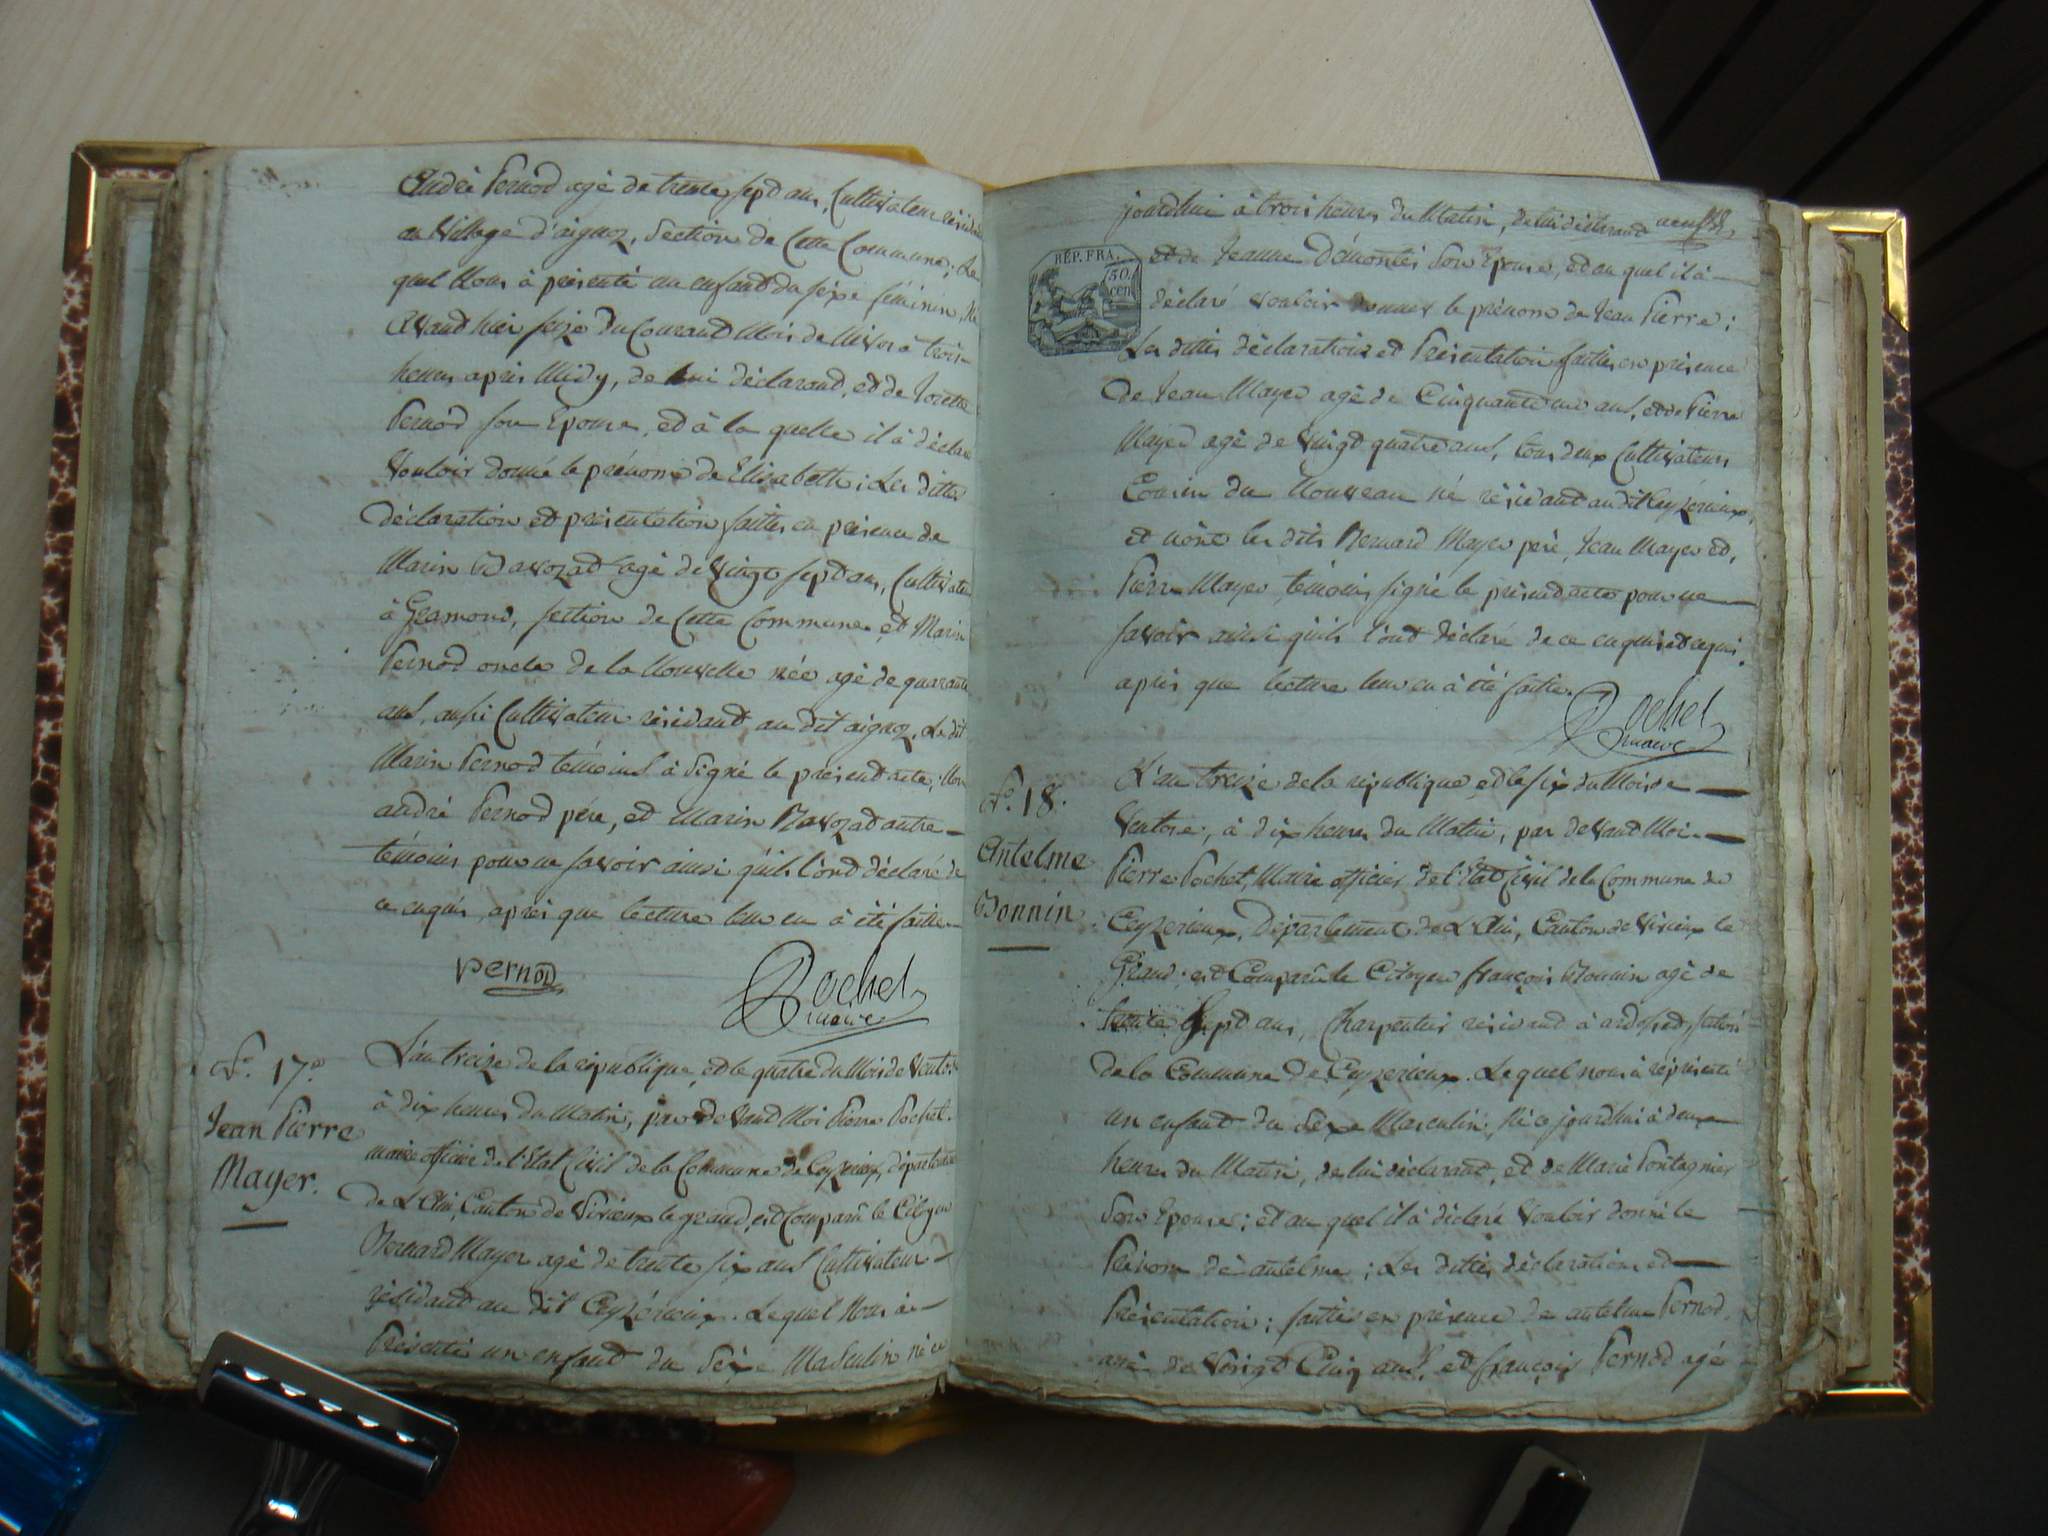 André Pernod agé de trente sept ans, Cultivateur résidant
au Village d'aignoz, Section de Cette Commune; Le
quel Nous à présenté un enfant du sexe féminin, Né
avant hier seize du Courant Mois de à trois
heures après Midy, de lui déclarant, et de Josette
Pernod son Epouse, et à la quelle il à déclaré
Vouloir donné le prénome de Elisabeth; Les dittes
déclaration et présentation faittes en présence de
Marin Bavozat agé de Vingt sept ans, Cultivateur
à Gramond, section de Cette Commune, et Marin
Pernod oncle de la Nouvelle née agé de quarante
ans, aussi Cultivateur résidant au dit aignoz, Le dit
Marin Pernod témoins à signé le présent acte, Non
andré Pernod père, et Marin Bavozat autre
témoins pour ne savoir ainsi qu'ils l'ont déclaré de
ce enquis, après que lecture leur en à été faitte
Pernod
Pochet
maire
N.° 17.°
Jean Pierre
Mayer.
L'an treize de la république, et le quatre du Mois de Ventose
à dix heures du Matin, par de Vant Moi Pierre Pochet
maire officier de l'Etat Civil de la Commune de Ceyzerieux, département
de L'Ain, Canton de Virieux le grand, est Comparû le Citoyen
Bernard Mayer agé de trente six ans Cultivateur
résidant au dit Ceyzérieux. Lequel Nous à
Présenté un enfant du Séxe Masculin né ce
jourdhui à trois heures du Matin, de lui déclarant
RÉP. FRA.
50
cen
et de Jeanne Démontés son Epouse, et au quel il à
déclaré vouloir donner le prénom de Jean Pierre;
Les dittes déclaration et Présentation faittes en présence
de Jean Mayer agé de Cinquante un ans, et de Pierre
Mayer agé de Vingt quatre ans, tous deux Cultivateurs
Cousin du Nouveau né résidant au dit Ceyzérieux,
et n'ont les dits Bernard Mayer père, Jean Mayer et,
Pierre Mayer, témoins, signé le présent acte pour ne
savoir ainsi qu'ils l'ont déclaré de ce enquis et requis,
après que lecture leur en à été faitte.
Pochet
maire
N.° 18.
Antelme
Bonnin
L'an treize de la république, et le six du Mois de
Ventose, à dix heures du Matin, par deVant Moi
Pierre Pochet, Maire officier de l'Etat Civil de la Commune de
Ceyzerieux, Département de L'Ain, Canton de Virieux le
Grand; est Comparû le Citoyen françois Bonnin agé de
trente Sept ans, Charpentier résidant à ardosset, section
de la Commune de Ceyzerieux. Le quel nous à réprésenté
un enfant du Séxe Masculin, Né ce jourdhui à deux
heures du Matin, de lui déclarant, et de Marie Pontagnier
Son Epouse; et au quel il à déclaré Vouloir donné le
Prénom de antelme; Les dittes déclaration et
Présentation; faittes en présence de antelme Pernod
agé de Vingt Cinq ans, et françois Pernod agé